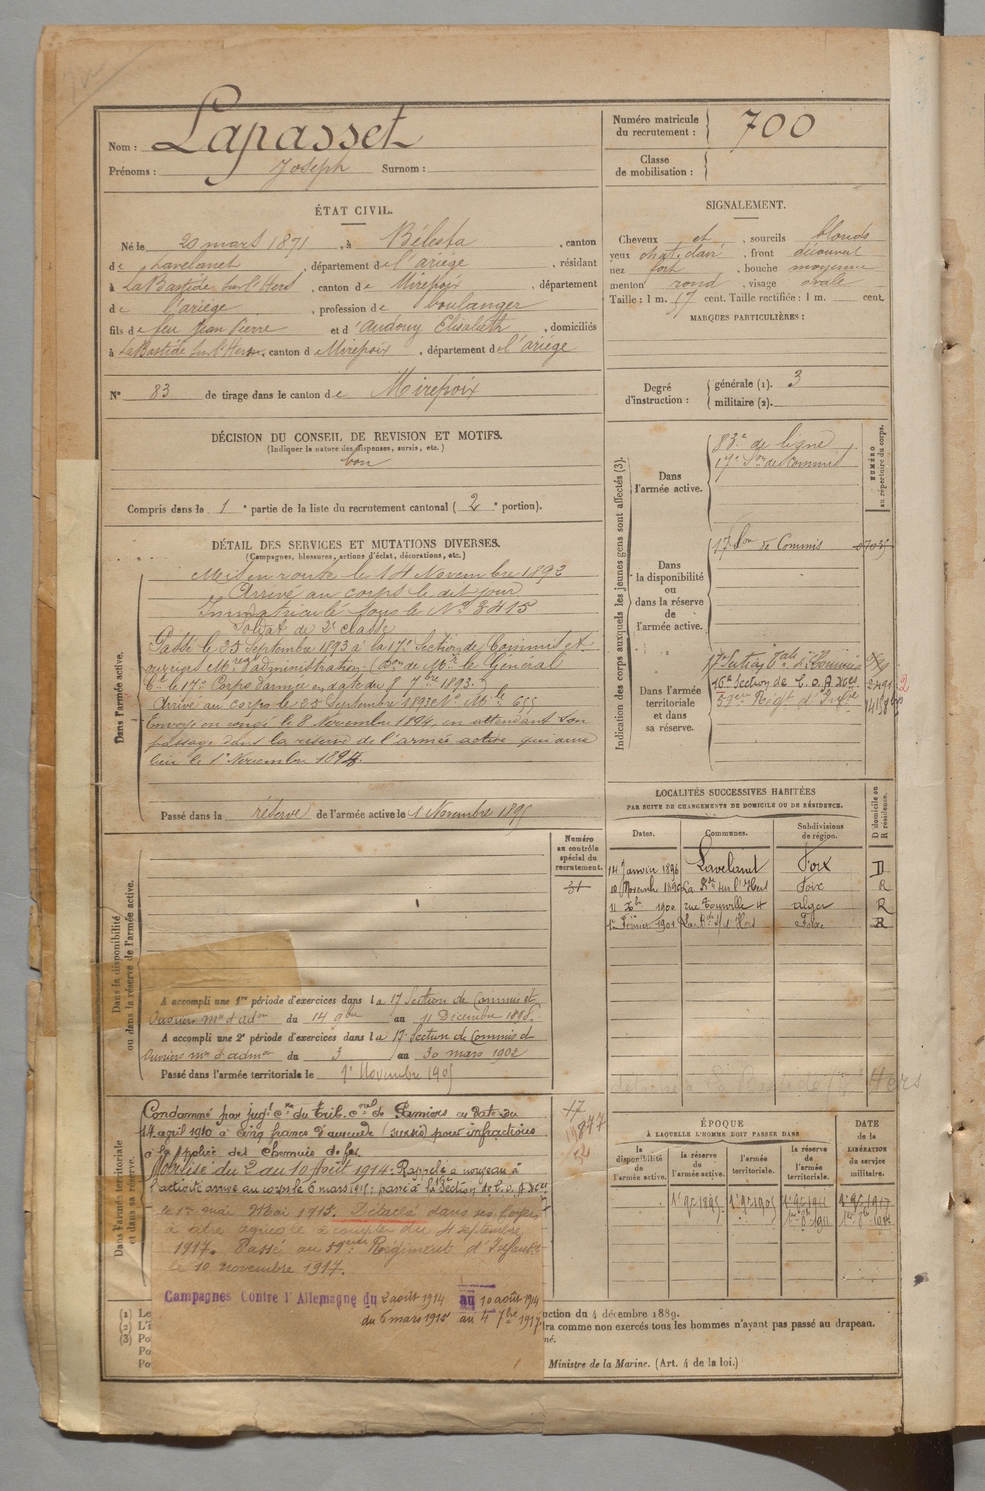 Nom : Lapasset
Prénoms : Joseph Surnom :
ÉTAT CIVIL.
Né le 20 mars 1871, à Bélesta, canton
de Lavelanet, département de l'ariège, résidant
à La Bastide sur l'Hers, canton de Mirepoix, département
de l'ariège, profession de boulanger
fils de feu Jean Pierre et d'Audouy Elisabeth, domiciliés
à La Bastide sur l'Hers, canton d Mirepoix, département de l'ariège
N° 83 de tirage dans le canton de Mirepoix
DÉCISION DU CONSEIL DE REVISION ET MOTIFS.
(Indiquer la nature des dispenses, sursis, etc.)
bon
Compris dans la 1e partie de la liste du recrutement cantonal (2e portion).
DÉTAIL DES SERVICES ET MUTATIONS DIVERSES.
(Campagnes, blessures, actions d'éclat, décorations, etc.)
Dans l'armée active.
Mis en route le 14 Novembre 1892
Arrivé au corps le dit jour
Immatriculé sous le N° 3415
Soldat de 2e classe
Passé le 25 Septembre 1893 à la 17e Section de Commis et
ouvriers Mres d'administration (Don de Mr le Général
Ct le 17e Corps d'armée en date du 8 7bre 1893.)
Arrivé au corps le 25 Septembre 1893 et N° Mle 655
Envoyé en congé le 8 Novembre 1894, en attendant son
passage dans la réserve de l'armée active qui aura
lieu le 1er Novembre 1895.
Passé dans la réserve de l'armée active le 1 Novembre 1895
Dans la disponibilité
ou dans la réserve de l'armée active.
Numéro
au contrôle
spécial du
recrutement.
31
A accompli une 1re période d'exercices dans la 17 Section de Commis et
Ouvriers mre d'adon du 14 9bre au 11 Décembre 1898.
A accompli une 2e période d'exercices dans la 17e Section de Commis et
Ouvriers mre d'admon du 3 au 30 mars 1902
Passé dans l'armée territoriale le 1er Novembre 1905
Dans l'armée territoriale
et dans sa réserve.
Condamné par jugt cre du Trib. cnel de Pamiers en date du
14 avril 1910 à cinq francs d'amende (sursis) pour infractions
à la police des chemins de fer
Mobilisé du 2 au 10 Août 1914. Rappelé à nouveau à
l'activité arrivé au corps le 6 mars 1915 : passé à la 16e Section de C. O. A 20es
le 1er mai Mai 1915. Détaché dans ses foyers
à titre agricole à compter du 4 septembre
1917. Passé au 59eme Régiment d'Infantie
le 10 novembre 1917.
Campagnes Contre l'Allemagne du 2 août 1914 au 10 août 1914
du 6 mars 1915 au 4 7bre 1917
(1) Le
(2) L'i
(3) Po
Po
Po
uction du 4 décembre 1889.
ra comme non exercés tous les hommes n'ayant pas passé au drapeau.
né.
Ministre de la Marine. (Art. 4 de la loi.)
Numéro matricule
du recrutement : 700
Classe
de mobilisation :
SIGNALEMENT.
Cheveux et, sourcils blonds
yeux chat. clair, front découvert
nez fort, bouche moyenne
menton rond, visage ovale
Taille : 1 m. 57 cent. Taille rectifiée : 1 m. cent.
MARQUES PARTICULIÈRES :
Degré
d'instruction :
générale (1). 3
militaire (2).
Indication des corps auxquels les jeunes gens sont affectés (3).
NUMÉRO
au répertoire du corps.
Dans
l'armée active.
83e de ligne
17e Son de Commis
Dans
la disponibilité
ou
dans la réserve
de
l'armée active.
17 Son de Commis
Dans l'armée
territoriale
et dans
sa réserve.
17e Section Tale de Commis
16e Section de C. O. A 20es 2491
59eme Régt d'Infie
LOCALITÉS SUCCESSIVES HABITÉES
PAR SUITE DE CHANGEMENTS DE DOMICILE OU DE RÉSIDENCE.
Dates. Communes. Subdivisions de région. D domicile ou R résidence.
14 Janvier 1896 Lavelanet Foix D
Novembre La Bde sur l'Hers Foix R
11 Xbre 1900 rue Tourville 4 alger R
12 Février 1901 La Bde s/ l'Hers Foix R
17
ÉPOQUE
À LAQUELLE L'HOMME DOIT PASSER DANS
la disponibilité de l'armée active.
la réserve de l'armée active.
l'armée territoriale.
la réserve de l'armée territoriale.
DATE
de la
LIBÉRATION
du service
militaire.
1er 9bre 1895 1er 9bre 1905 1er 9bre 1911 1er 9bre 1917